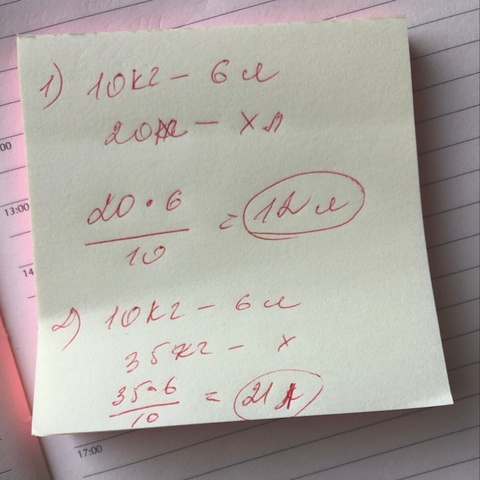 1) 10кг - 6 л
20кг - х л
20 • 6
10
= 12 л
2) 10кг - 6 л
35кг - х
35•6
10
= 21 л
13:00
14
17:00
00